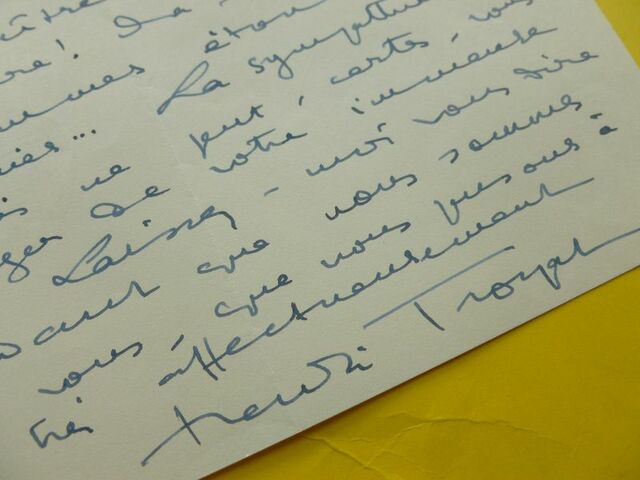 re! La
mmes étran
... La sympathie
ne peut, certes, vous
de votre immense
Laissez-moi vous dire
que nous sommes
vous, que nous pensons à
très affectueusement
Henri Troyat